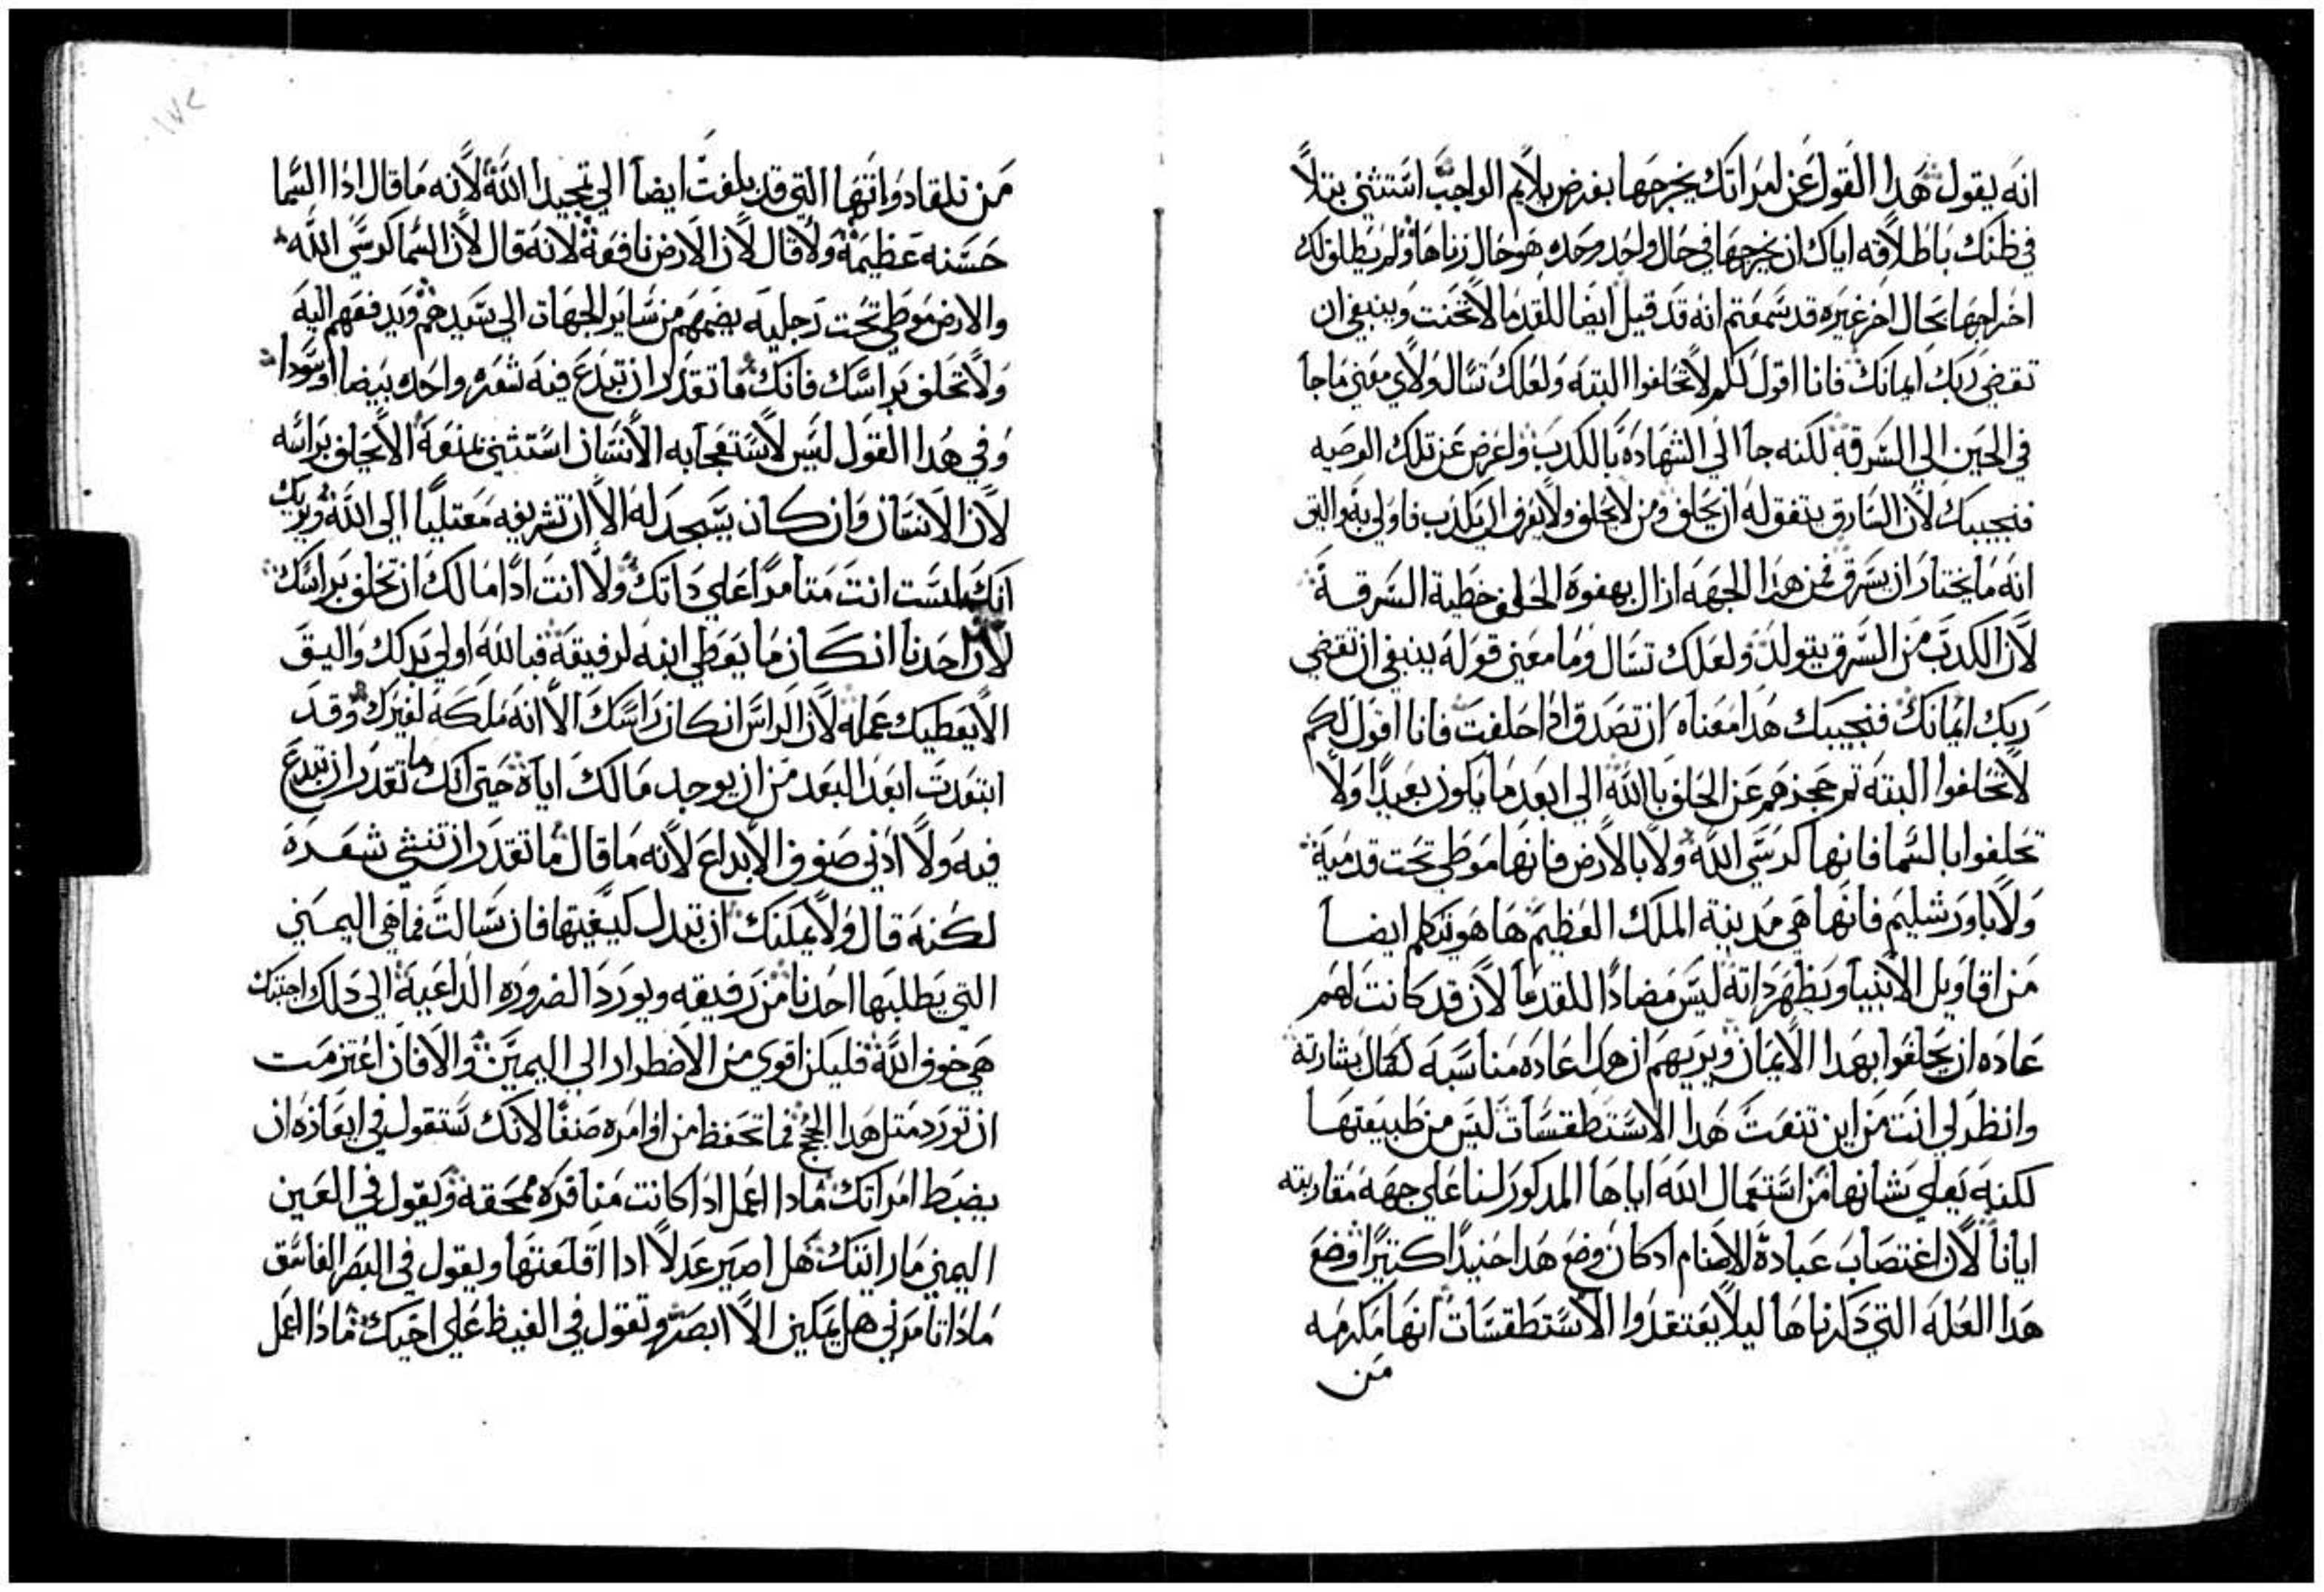 انه يقول هدا القول عن امراتك يخرجها بغرض يلايم الواجب استثني بتلا
في ظنك باطلاقه اياك ان تخرجها في حال واحد وحده هو حال زناها ولم يطلق لك
اخراجها بحال اخر غيره قد سمعتم انه قد قيل ايضا للقدما لا تحنت وينبغي ان
تقضي ربك ايمانك فانا اقول لكم لا تحلفوا البته ولعلك تسال ولاي معني ما جا
في الحين الي السرقه لكنه جا الي الشهاده بالكدب واعرض عن تلك الوصيه
فنجيبك لان السارق يتفق له ان يحلف ومن لا يحلف ولا يعرف ان يكدب فاولي به واليق
انه ما يختار ان يسرق فمن هدا الجهه ازال بهفوة الحلف خطية السرقة
لان الكدب من السرق يتولد ولعلك تسال وما معني قوله ينبغي ان تقضي
ربك ايمانك فنجيبك هدا معناه ان تصدق ادا حلفت فانا اقول لكم
لا تحلفوا البته تم حجزهم عن الحلف بالله الي ابعد ما يكون بعيدا ولا
تحلفوا بالسما فانها كرسي الله ولا بالارض فانها موطي تحت قدميه
ولا باورشليم فانها هي مدينة الملك العظيم ها هو يتكلم ايضا
من اقاويل الانبيا ويظهر داته ليس مضادا للقدما لان قد كانت لهم
عاده ان يحلفوا بهدا الايمان ويريهم ان هدا عاده مناسبه لكمال بشارته
وانظر لي انت من اين تنعت هدا الاستطقسات ليس من طبيعتها
لكنه يعلي شانها من استعمال الله اياها المدكور لنا علي جهة مقاربته
ايانا لان اغتصاب عبادة الاصنام ادكان وضع هدا حنيدا كتيرا وضع
هدا العله التي دكرناها ليلا يعتقدوا الاستطقسات انها مكرمه
من
من تلقا دواتها التي قد بلغت ايضا الي تمجيد الله لانه ما قال ادا السما
حسنه عظيمه ولا قال لان الارض نافعه لانه قال لان السما كرسي الله
والارض موطي تحت رجليه يضمهم من ساير الجهات الي سيدهم ويدفعهم اليه
ولا تحلف براسك فانك ما تقدر ان تبدع فيه شعره واحده بيضا او سودا
وفي هدا القول ليس لاستعجابه الانسان استثني بمنعه الا يحلف براسه
لان الانسان وان كان يسجد له الا ان تشريفه معتليا الي الله ويريك
انك لست انت متامرا علي داتك ولا انت ادا مالك ان تحلف براسك
لان احدنا ان كان ما يعطي ابنه لرفيقه فبالله اولي بدلك واليق
الا يعطيك عمله لان الراس ان كان راسك الا انه ملكه لغيرك وقد
ابتعدت ابعد البعد من ان يوجد مالك اياه حتي انك ما تقدر ان تبدع
فيه ولا ادني صنوف الابداع لانه ما قال ما تقدر ان تنشي شعرة
لكنه قال ولا يمكنك ان تبدل كيفيتها فان سالت فما هي اليمين
التي يطلبها احدنا من رفيقه ويورد الضروره الداعيه الي دلك اجبتك
هي خوف الله فليكن اقوي من الاضطرار الي اليمين والا فان اعتزمت
ان تورد متل هدا الحجج فما تحفظ من اوامره صنفا لانك ستقول في ايعازه ان
يضبط امراتك مادا اعمل ادا كانت منافره ممحقه وتقول في العين
اليمين ما رايتك هل اصير عدلا ادا اقلعتها ويقول في البصر الفاسق
مادا تامرني هل يمكن الا ابصر وتقول في الغيظ علي اخيك مادا اعمل